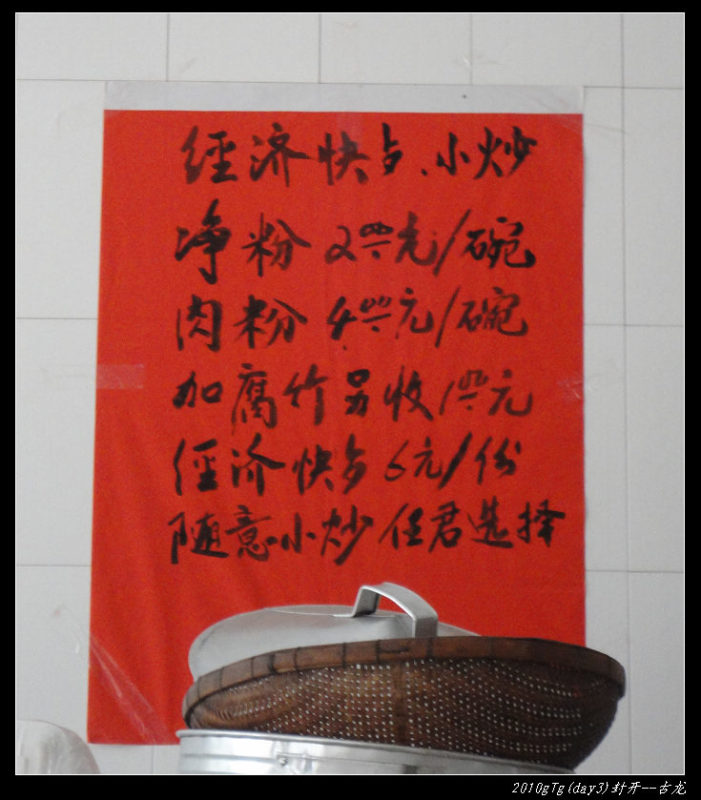 经济快歺、小炒
净粉 2.00元/碗
肉粉 4.00元/碗
加腐竹另收1.00元
经济快歺 6元/份
随意小炒 任君选择
2010gTg(day3)封开--古龙